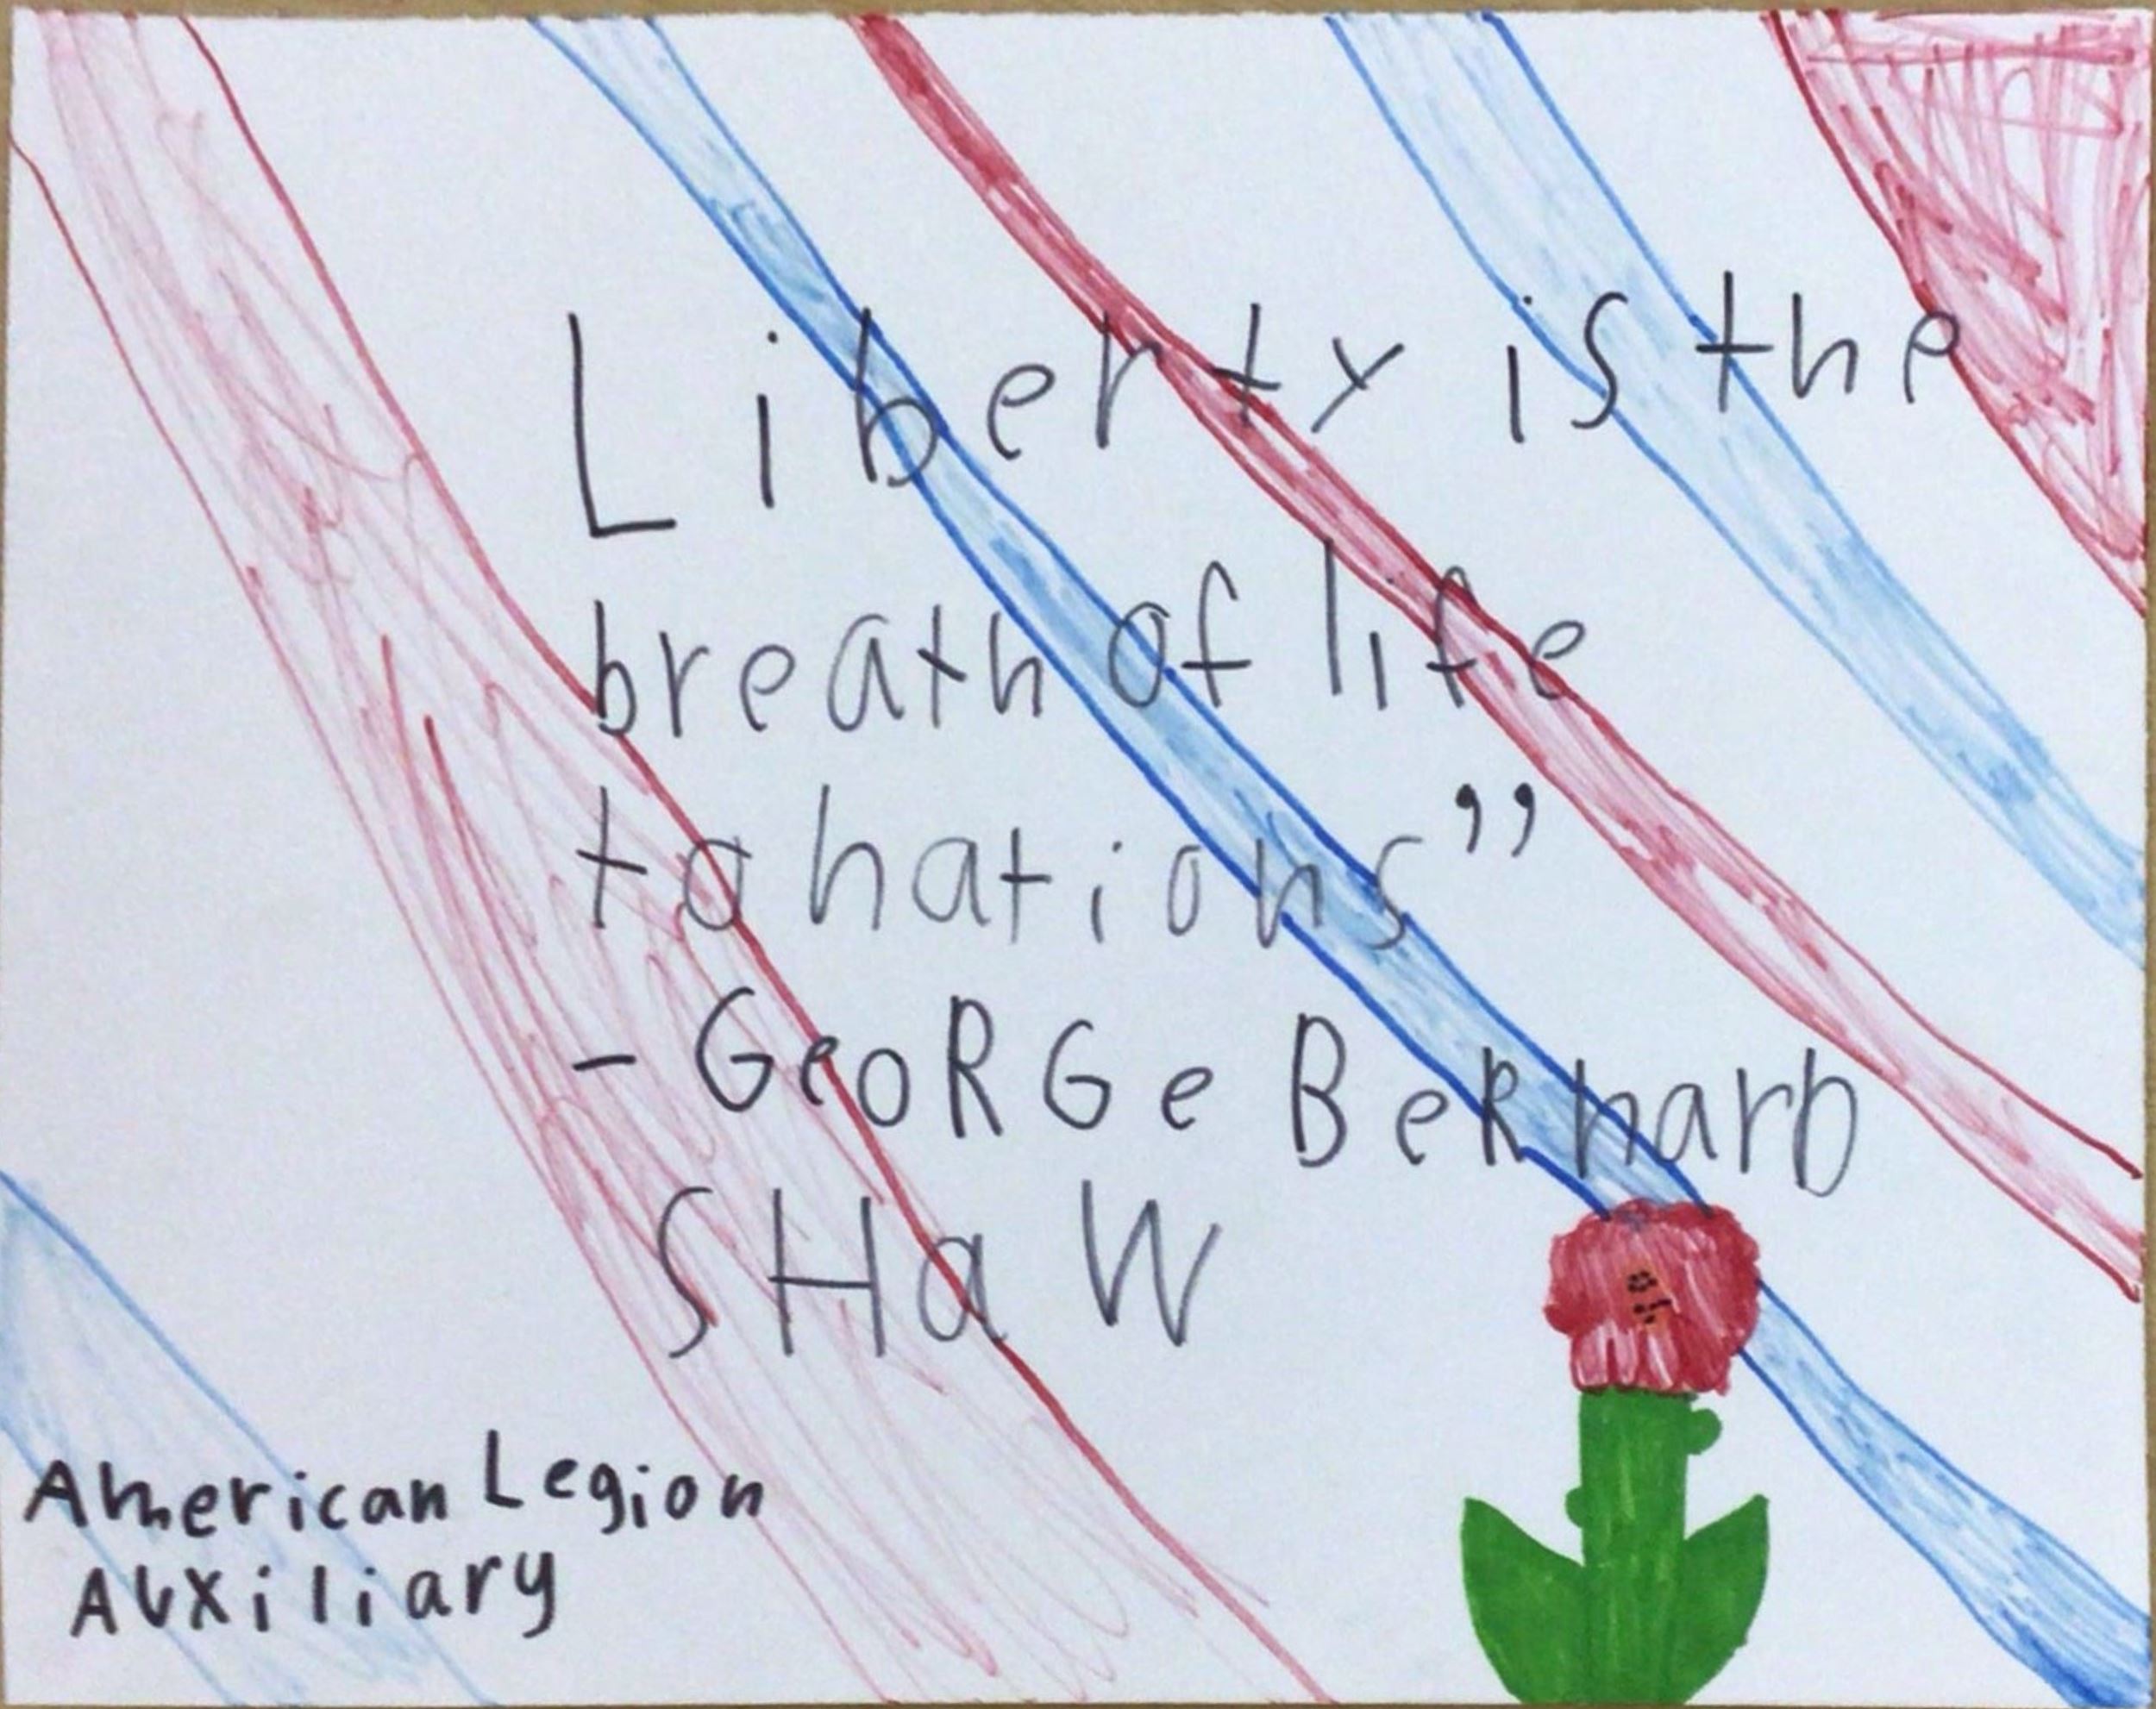 Liberty is the
breath of life
to nations”
- GeoRGe BeRnarD
SHaW
American Legion
AuXiliary